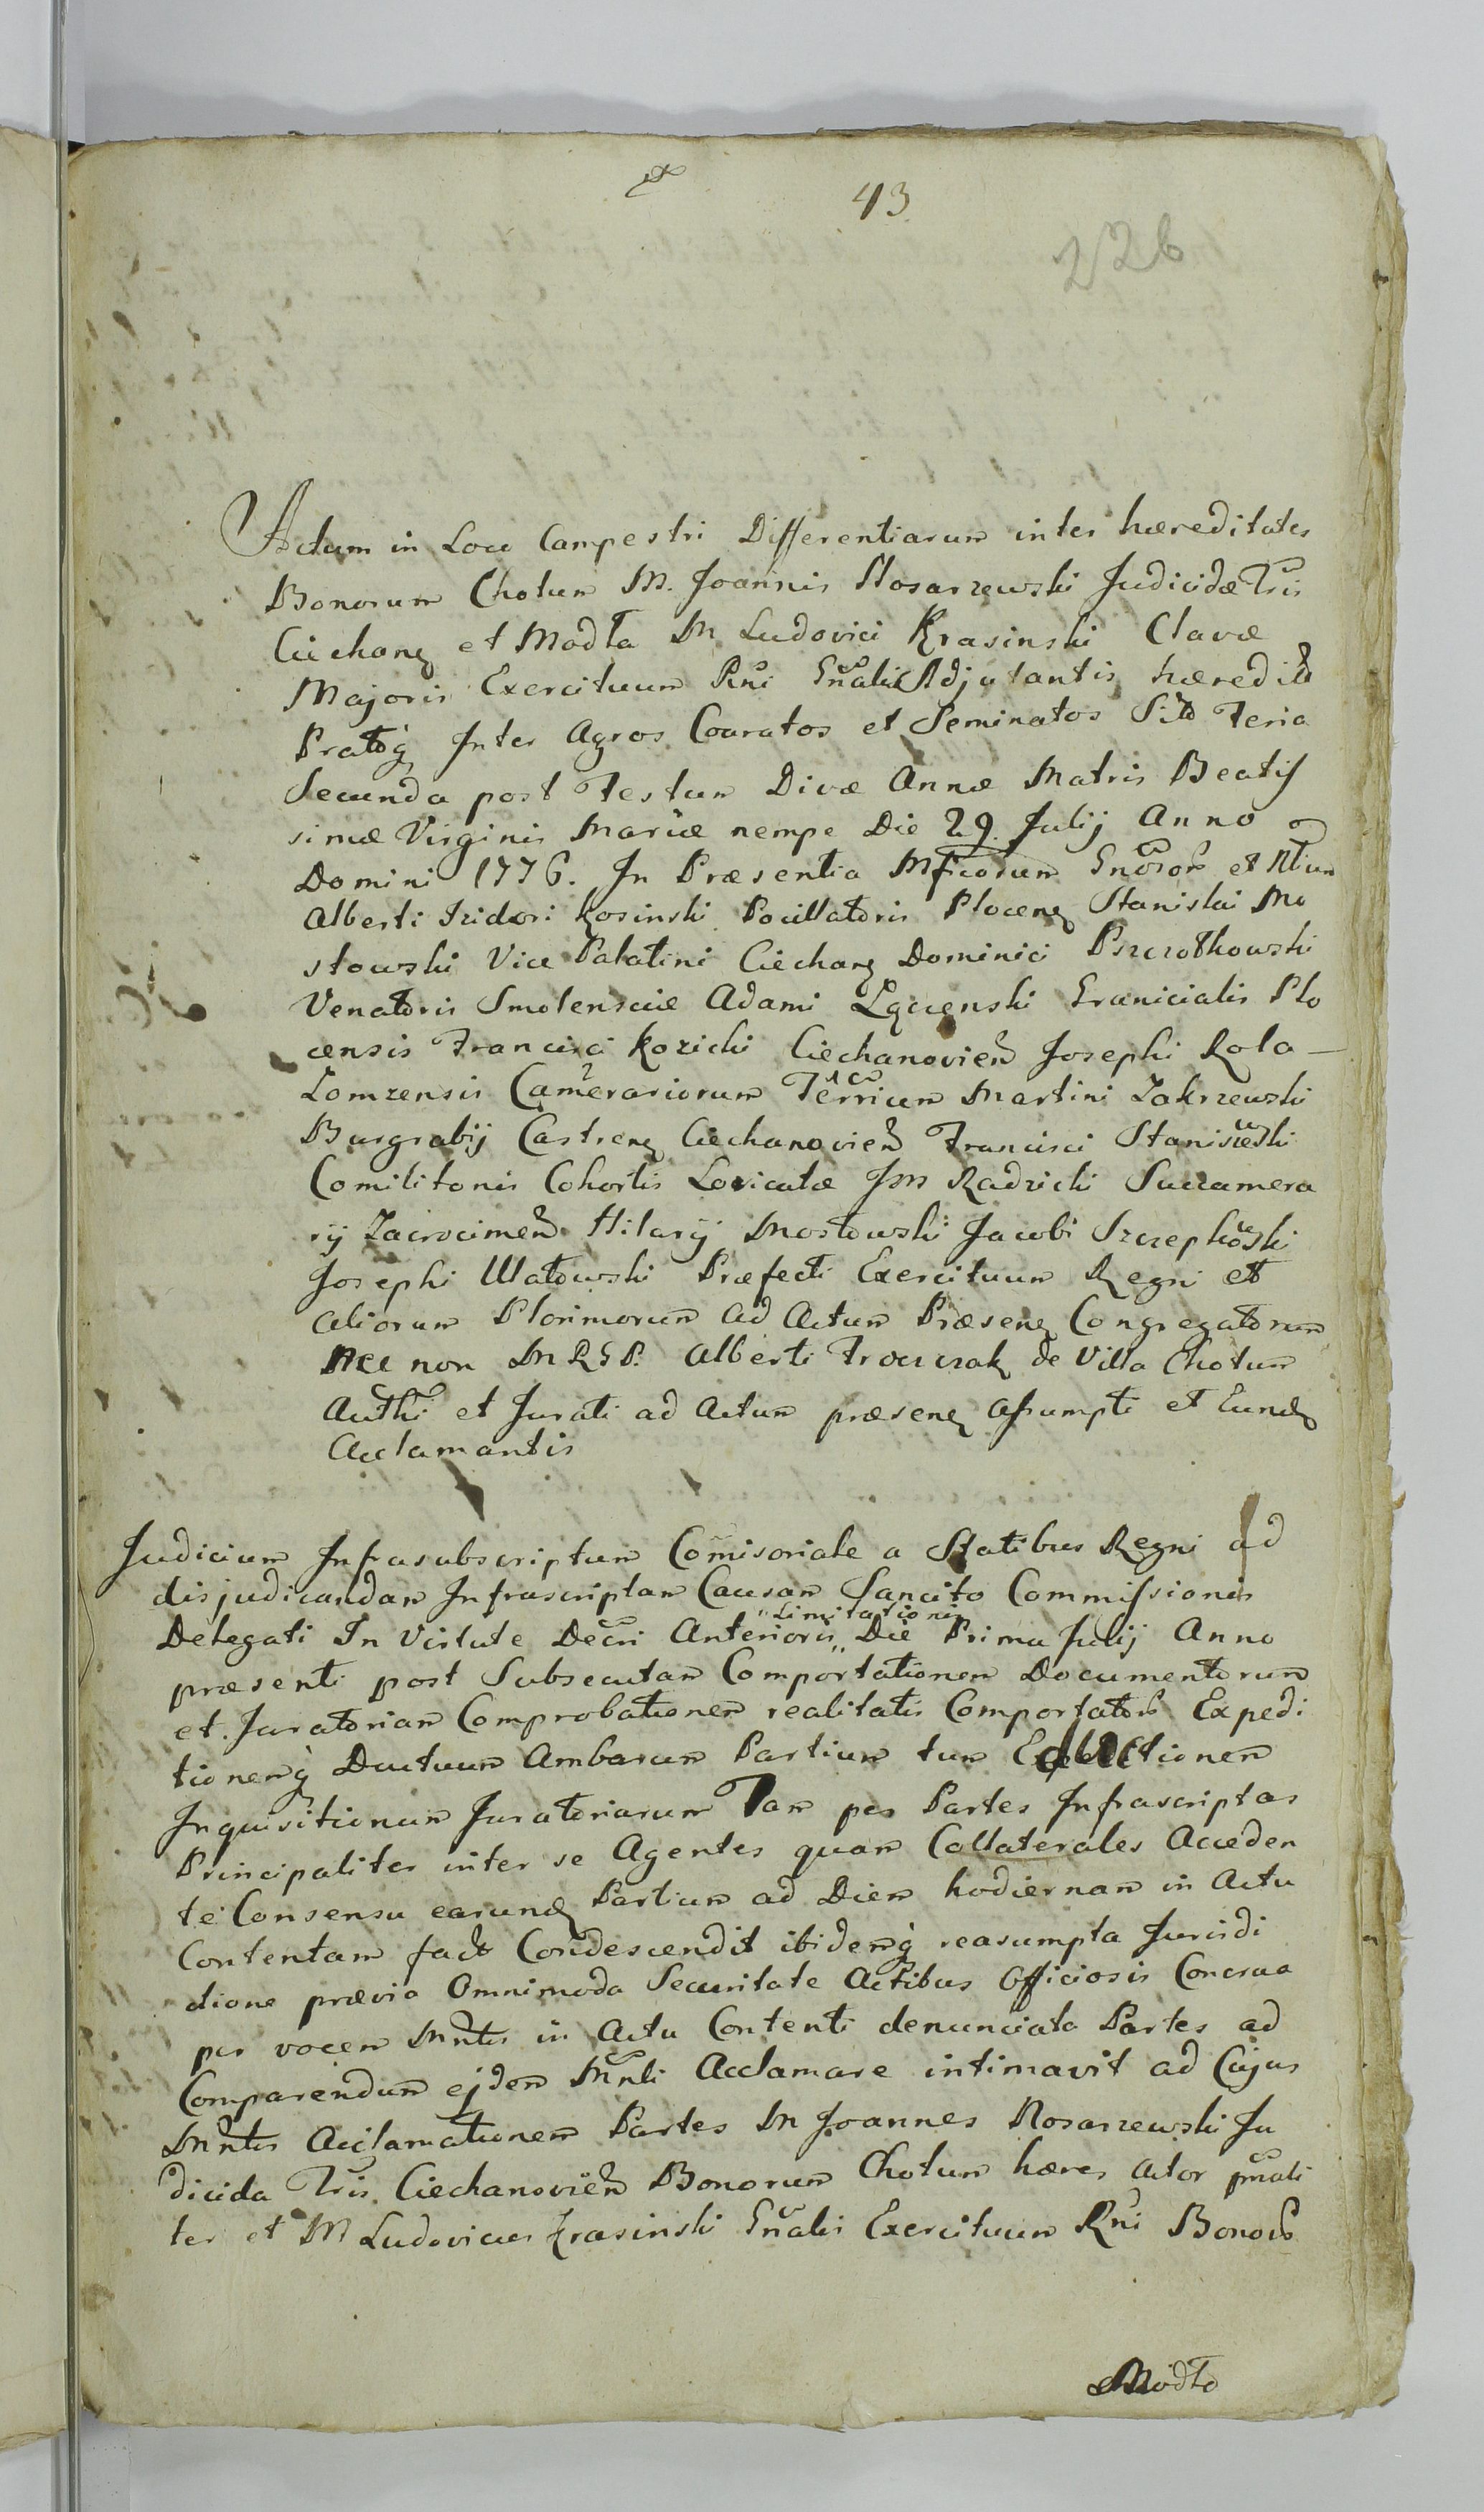 43
226
Actum in Loco Campestri Differentiarum inter hæreditates
Bonorum Chotum M. Joannis Nosarzewski Judicidæ Tris
Ciechang et Modła M Ludovici Krasinski Clavæ
Majoris Exercituum Rni Gnalis Adjutantis hæredit
Pratoq Inter Agros Coaratos et Seminatos Sito Feria
Secunda post Festum Divæ Annæ Matris Beatis
simæ Virginis Mariæ nempe Die 29. Julij Anno
Domini 1776. In Præsentia Mficorum Gnosor et Nlium
Alberti Izidori Kosinski Pocillatoris Plocens Stanislai Mo
stowski Vice Palatini Ciechang Dominici Pszczołkowski
Venatoris Smolensciæ Adami Łączenski Granicialis Plo
censis Francisci Kozicki Ciechanovien Josephi Rola
Łomzensis Camerariorum Terrium Martini Zakrzewski
Burgrabij Castreng Ciechanovien Francisci Staniszewski
Comilitonis Cohortis Loricatæ Radzicki Succamera
rij Zacrocimen Hilarij Mostowski Jacobi Szczepkowski
Josephi Ulatowski Præfecti Exercituum Regni et
aliorum Plorimorum ad Actum Præseng Congregatorum
Nec non M R G P. Alberti Troczczak de Villa Chotum
Authi et Jurati ad Actum præseng assumpti et Eundg
Acclamantis
Judicium Infrasubscriptum Comisoriale a Statibus Regni ad
disjudicandam Infrascriptam Causam Sancito Commissionis
Limitationis
Delegati In Virtute Decri Anterioris Die Prima Julij Anno
præsenti post Subsecutam Comportationem Documentorum
et Juratoriam Comprobationem realitatis Comportator Expedi
tionemq Ductuum Ambarum Partium tum
Inquisitionum Juratoriarum Tam per Partes Infrascriptas
Principaliter inter se Agentes quam Collaterales Acceden
te Consensu earundg Partium ad Diem hodiernam in Actu
Contentam facto Condescendit ibidemq reasumpta Jurisdi
ctione prævia Omnimoda Securitate Actibus Officiosis Concrua
per vocem Mntis in Actu Contenti denunciata Partes ad
Comparendum ejdem Mnli Acclamare intimavit ad Cujus
Mntis Acclamationem Partes M Joannes Nosarzewski Ju
dicida Tris Ciechanovien Bonorum Chotum hæres Actor pnali
ter et M Ludovicus Krasinski Gnalis Exercituum Rni Bonor
Modło